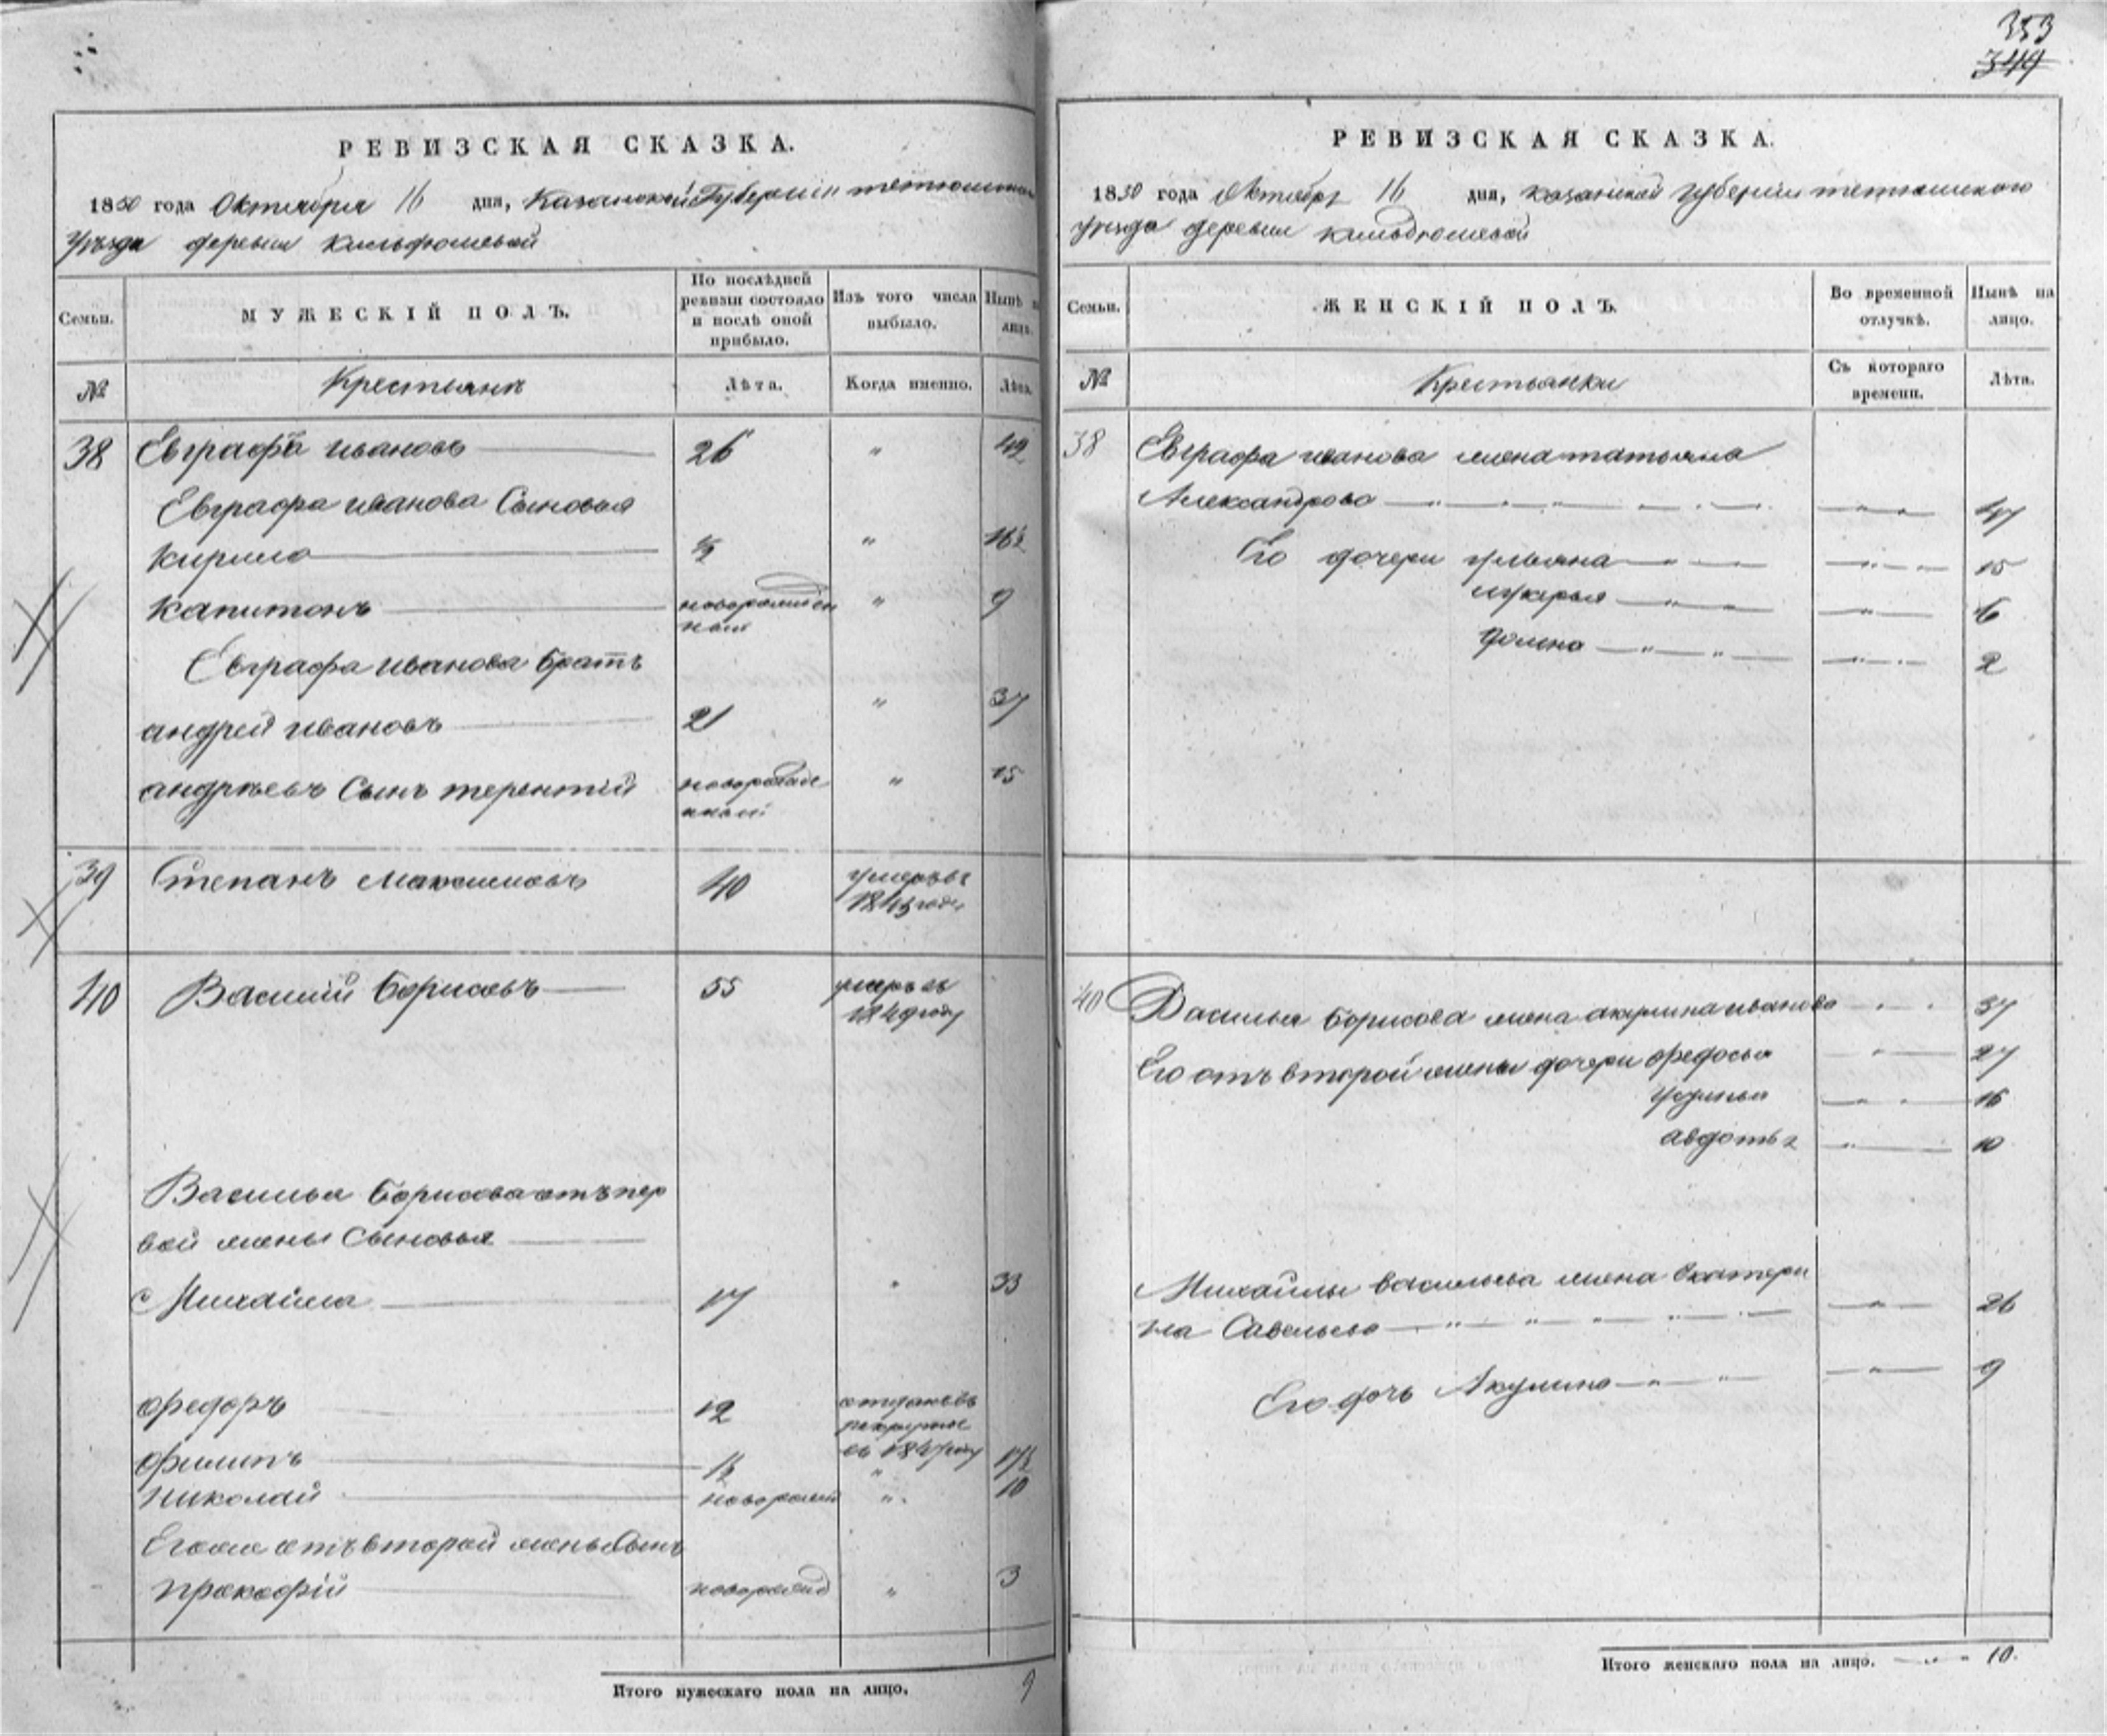 353
349
РЕВИЗСКАЯ СКАЗКА.
1850 года Октября 16 дня, Казанской Губернии тетюшскаго
уѣзда деревни Кильдюшевой
Семьи.
МУЖЕСКІЙ ПОЛЪ.
По послѣдней ревизіи состояло и послѣ оной прибыло.
Изъ того числа выбыло.
Нынѣ на лицо.
№
Крестьянъ
Лѣта.
Когда именно.
Лѣта.
38 Евграфъ ивановъ 26 " 42
Евграфа иванова Сыновья
Кирило ½ " 16½
Капитонъ новорожден " 9
ный
Евграфа иванова братъ
андрей ивановъ 21 " 37
андрѣевъ Сынъ терентій новорожде " 15
нный
39 Степанъ Максимовъ 40 умеръ въ
184 году
40 Василій борисовъ 55 умеръ въ
1849 году
Василья борисова отъ пер
вой жены Сыновья
Михайла 17 " 33
Федоръ 12 отданъ въ
рекруты
въ 1847 году
Филипъ 1½ " 17½
Николай новорожд " 10
Его же отъ второй жены Сынъ
прокофій новорожд " 3
Итого мужескаго пола на лицо. 9
РЕВИЗСКАЯ СКАЗКА.
1850 года Октября 16 дня, казанской губерніи тетюшскаго
уѣзда деревни кильдюшевой
Семьи.
ЖЕНСКІЙ ПОЛЪ.
Во временной отлучкѣ.
Нынѣ на лицо.
№
Крестьянки
Съ котораго времени.
Лѣта.
38 Евграфа иванова жена татьяна
Александрова 47
Его дочери ульяна 15
лукерья 6
2
40 Василья борисова жена акулина иванова 37
Его отъ второй жены дочери федосья 27
устинья 16
авдотья 10
Михайлы васильева жена Екатери
на Савельева 26
Его дочь Акулина 9
Итого женскаго пола на лицо. 10.